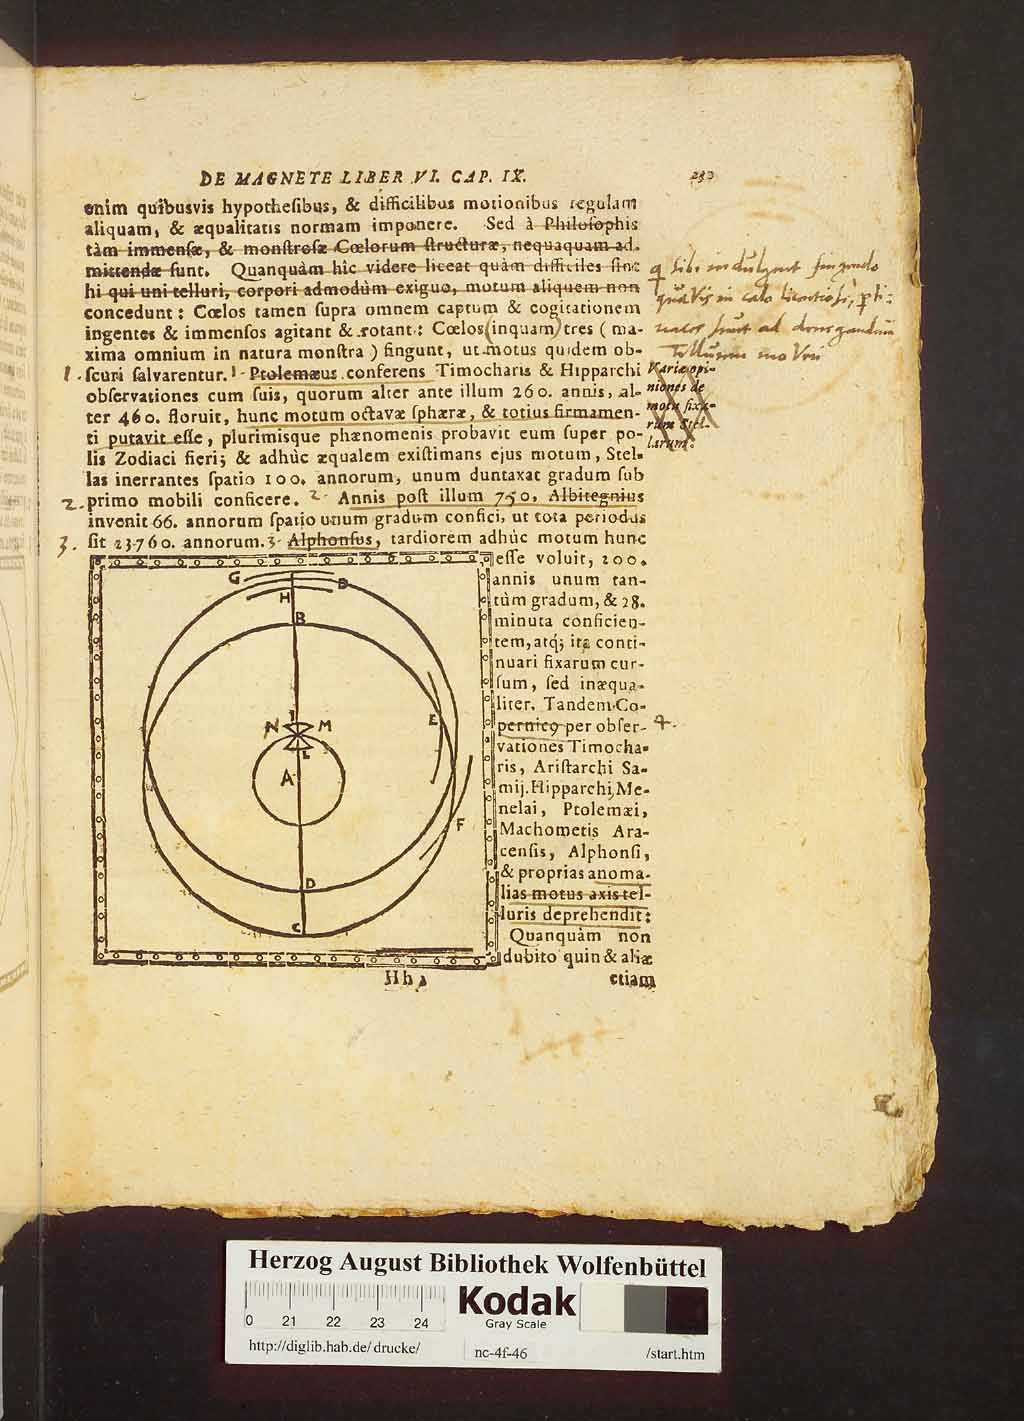 DE MAGNETE LIBER VI. CAP. IX. 230
enim quibusvis hypothesibus, & difficilibus motionibus regulam
aliquam, & æqualitatis normam imponere. Sed à Philosophis
tàm immensæ, & monstrosæ Cœlorum structuræ, nequaquam ad-
mittendæ sunt. Quanquàm hîc videre liceat quàm difficiles sint
hi qui uni telluri, corpori admodùm exiguo, motum aliquem non
concedunt: Cœlos tamen supra omnem captum & cogitationem
ingentes & immensos agitant & rotant: Cœlos (inquam) tres (ma-
xima omnium in natura monstra) fingunt, ut motus quidem ob-
1. scuri salvarentur. 1. Ptolemæus conferens Timocharis & Hipparchi
observationes cum suis, quorum alter ante illum 260. annis, al-
ter 460. floruit, hunc motum octavæ sphæræ, & totius firmamen-
ti putavit esse, plurimisque phænomenis probavit eum super po-
lis Zodiaci fieri; & adhùc æqualem existimans ejus motum, Stel-
las inerrantes spatio 100. annorum, unum duntaxat gradum sub
2. primo mobili conficere. 2. Annis post illum 750, Albitegnius
invenit 66. annorum spatio unum gradum confici, ut tota periodus
3. sit 23760. annorum. 3. Alphonsus, tardiorem adhùc motum hunc
esse voluit, 200.
annis unum tan-
tùm gradum, & 28.
minuta conficien-
tem, atq; ita conti-
nuari fixarum cur-
sum, sed inæqua-
liter. Tandem Co-
pernicꝰ per obser- 4.
vationes Timocha-
ris, Aristarchi Sa-
mij, Hipparchi, Me-
nelai, Ptolemæi,
Machometis Ara-
censis, Alphonsi,
& proprias anoma-
lias motus axis tel-
luris deprehendit:
Quanquàm non
dubito quin & aliæ
Hh etiam
sibi indulgent fingendo
in cælo
sunt ad
Variæ opi-
niones de
motu fixa-
rum Stel-
larum.
G
D
H
B
I
N M
L
A
E
F
D
C
Herzog August Bibliothek Wolfenbüttel
0 21 22 23 24
Kodak
Gray Scale
http://diglib.hab.de/drucke/ nc-4f-46 /start.htm